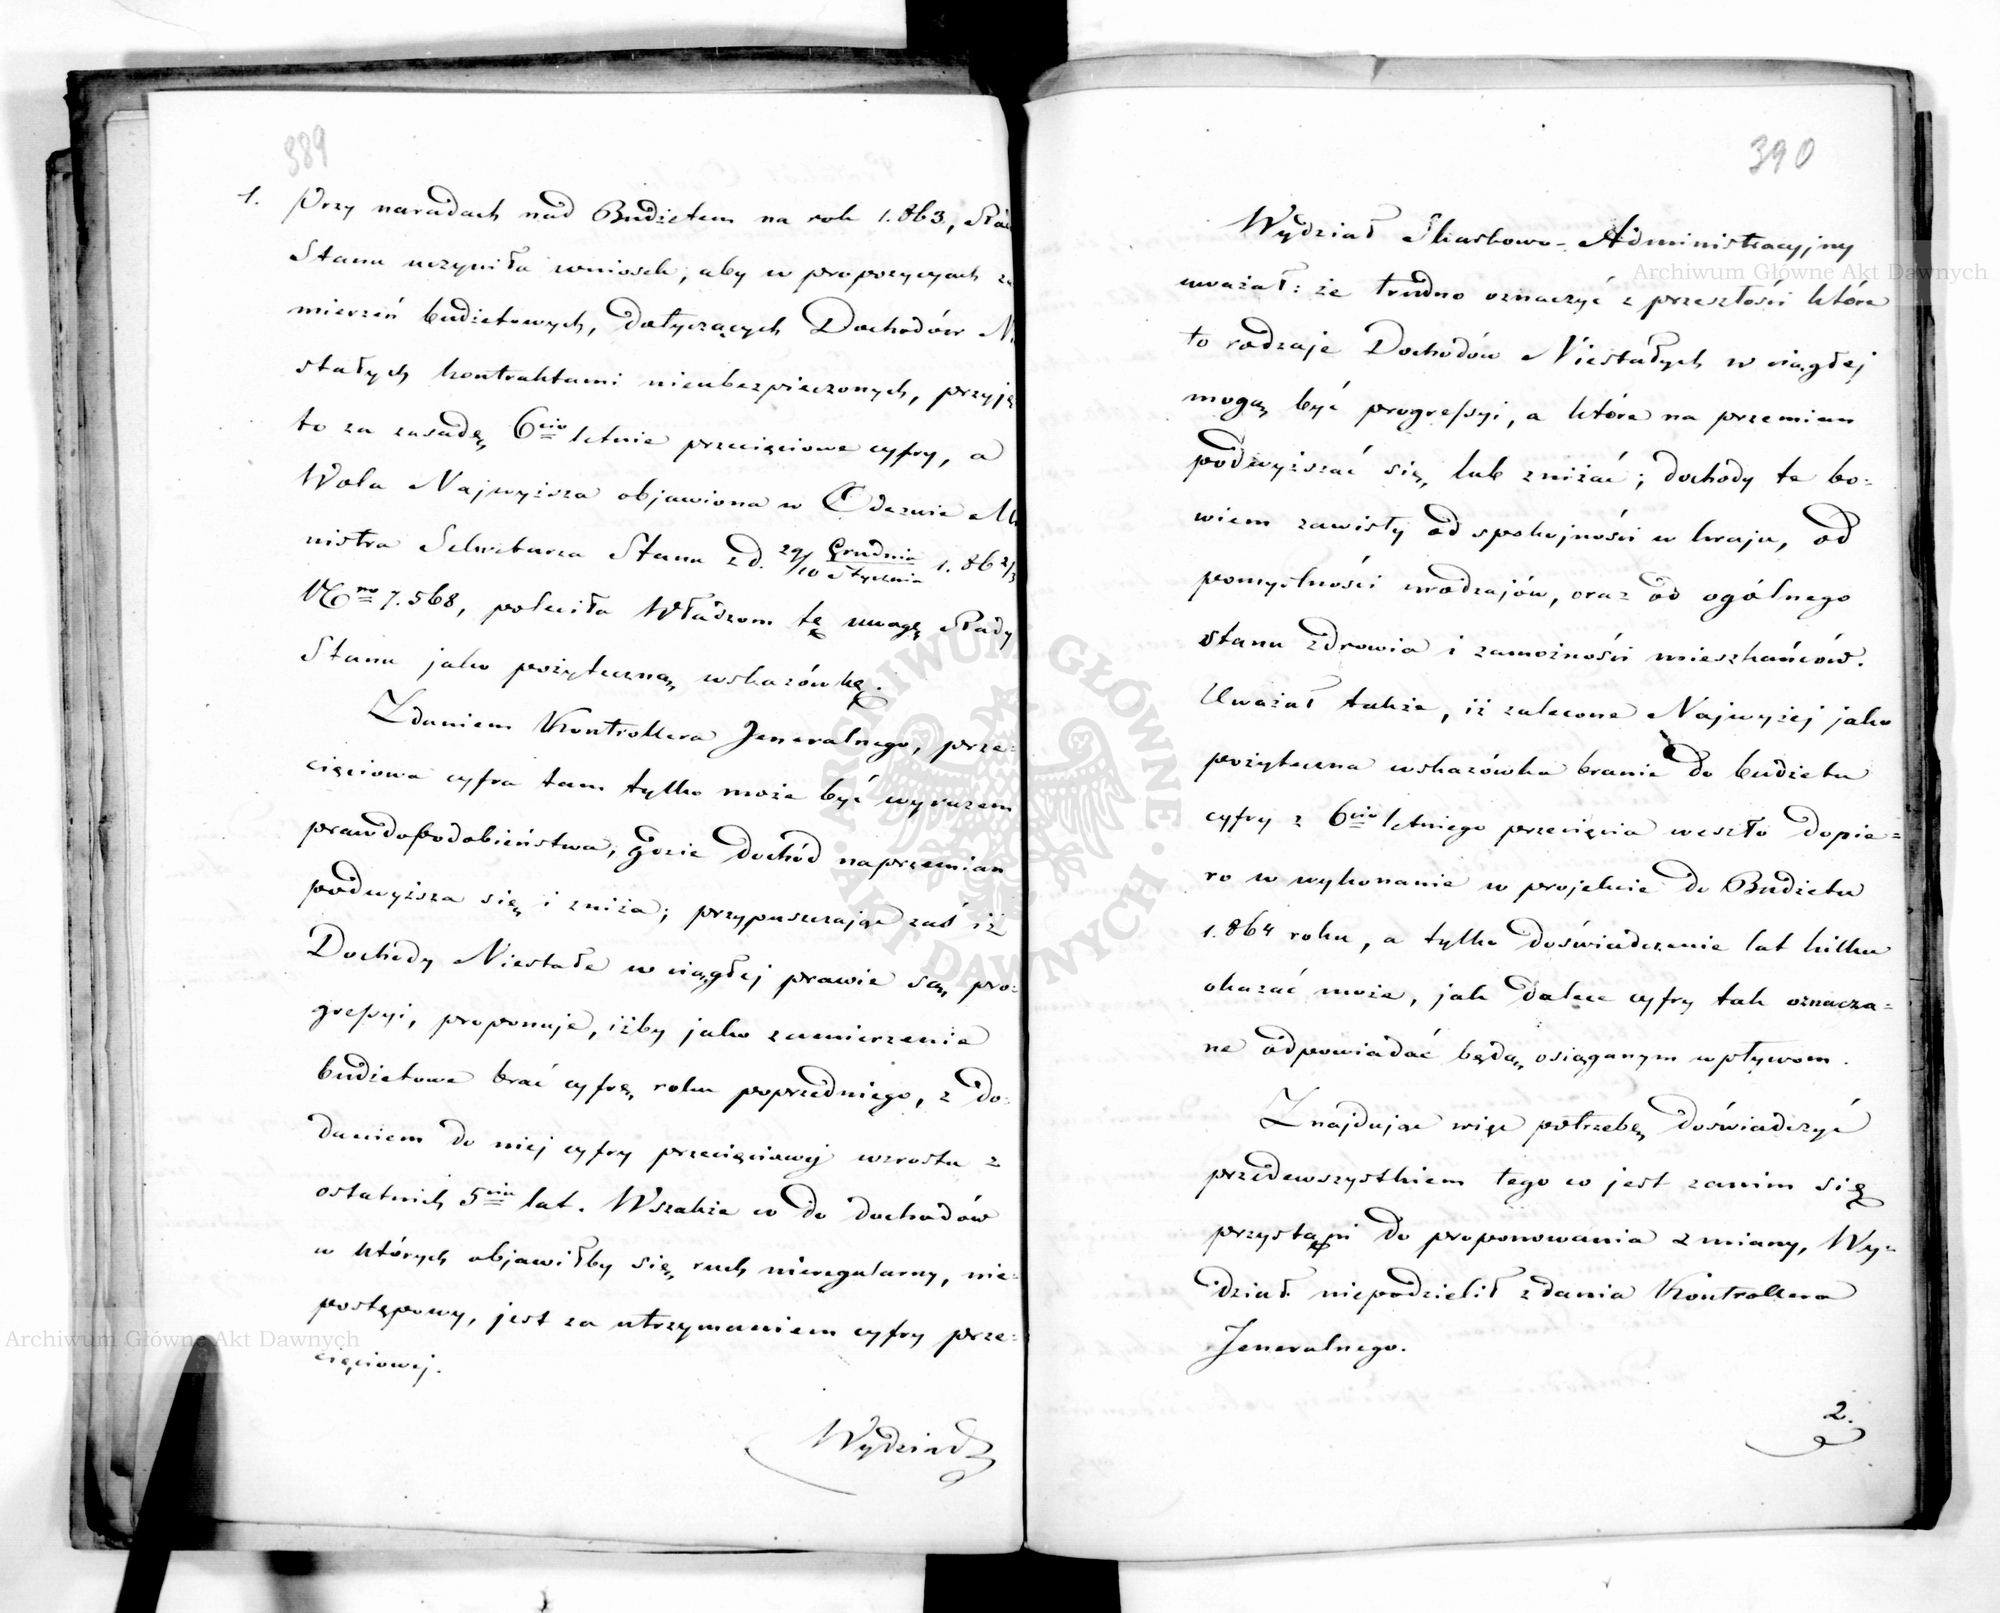 389
1. Przy naradach nad Budżetem na rok 1.863, Rad
Stanu uczyniła wniosek, aby w propozycyach za
mierzeń budżetowych, dotyczących Dochodów Ni
stałych kontraktami nieubezpieczonych, przyję
to za zasadę, 6cio letnie przecięciowe cyfry, a
Wola Najwyższa objawiona w Odezwie Mi
nistra Sekretarza Stanu z d. 29/10 Grudnia/Stycznia 1.862/3
Nro 7.568, poleciła Władzom tę uwagę Rady
Stanu jako pożyteczną wskazówkę.
Zdaniem Kontrollera Jeneralnego, prze-
cięciowa cyfra tam tylko może być wyrazem
prawdopodobieństwa, gdzie dochód naprzemian
podwyższa się i zniża; przypuszczając zaś iż
Dochody Niestałe w ciągłej prawie są pro-
gressyi, proponuje, iżby jako zamierzenie
budżetowe brać cyfrę roku poprzedniego, z do-
daniem do niej cyfry przecięciowej wzrostu z
ostatnich 5ciu lat. Wszakże co do dochodów
w których objawiłby się ruch nieregularny, nie-
postępowy, jest za utrzymaniem cyfry prze-
cięciowej.
Wydział
390
Wydział Skarbowo-Administracyjny
uważał: że trudno oznaczyć z przeszłości które
to rodzaje Dochodów Niestałych w ciągłej
mogą być progressyi, a które na przemian
podwyższać się, lub zniżać; dochody te bo-
wiem zawisły od spokojności w kraju, od
pomyślności urodzajów, oraz od ogólnego
stanu zdrowia i zamożności mieszkańców.
Uważał także, iż zalecone Najwyżej jako
pożyteczna wskazówka branie do budżetu
cyfry z 6cio letniego przecięcia weszło dopie-
ro w wykonanie w projekcie do Budżetu
1.864 roku, a tylko doświadczenie lat kilku
okazać może, jak dalece cyfry tak oznacza-
ne odpowiadać będą osiąganym wpływom.
Znajdując więc potrzebę doświadczyć
przedewszystkiem tego co jest zanim się
przystąpi do proponowania zmiany, Wy-
dział niepodzielił zdania Kontrollera
Jeneralnego.
2.
Archiwum Główne Akt Dawnych
Archiwum Główne Akt Dawnych
ARCHIWUM GŁÓWNE · AKT DAWNYCH ·